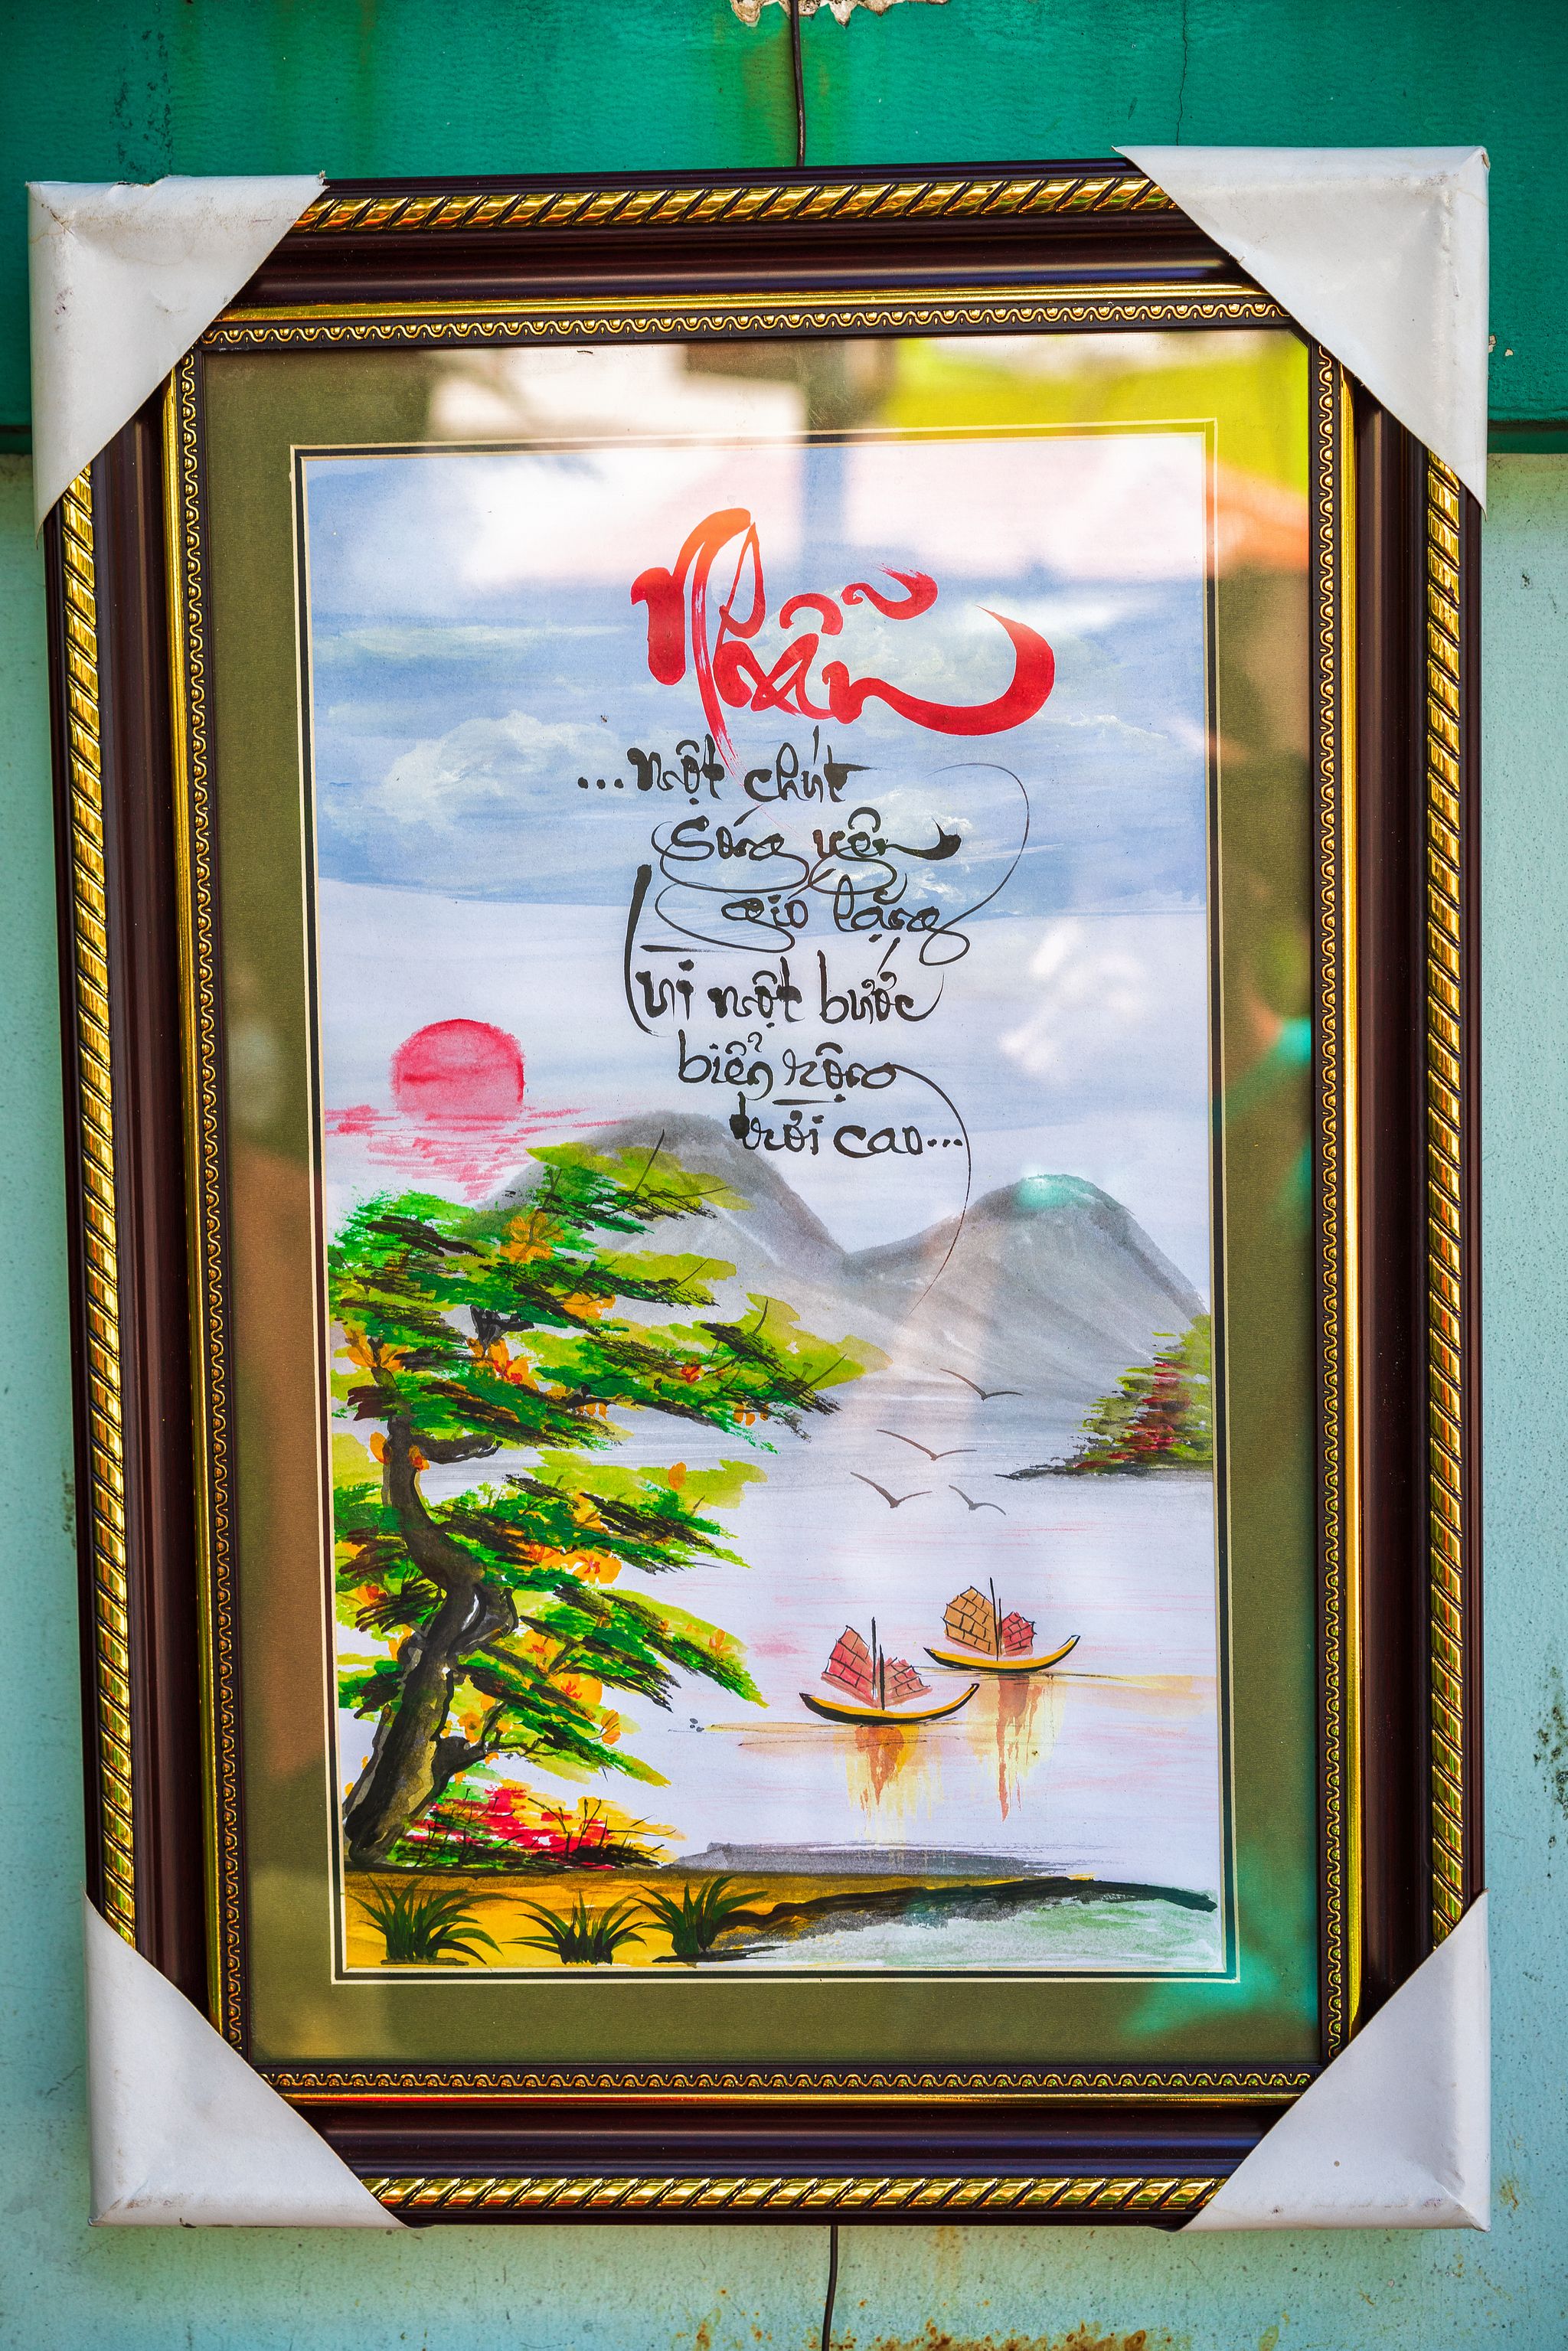 Nhẫn
...một chút
sóng yên
gió lặng
Lui một bước
biển rộng
trời cao...